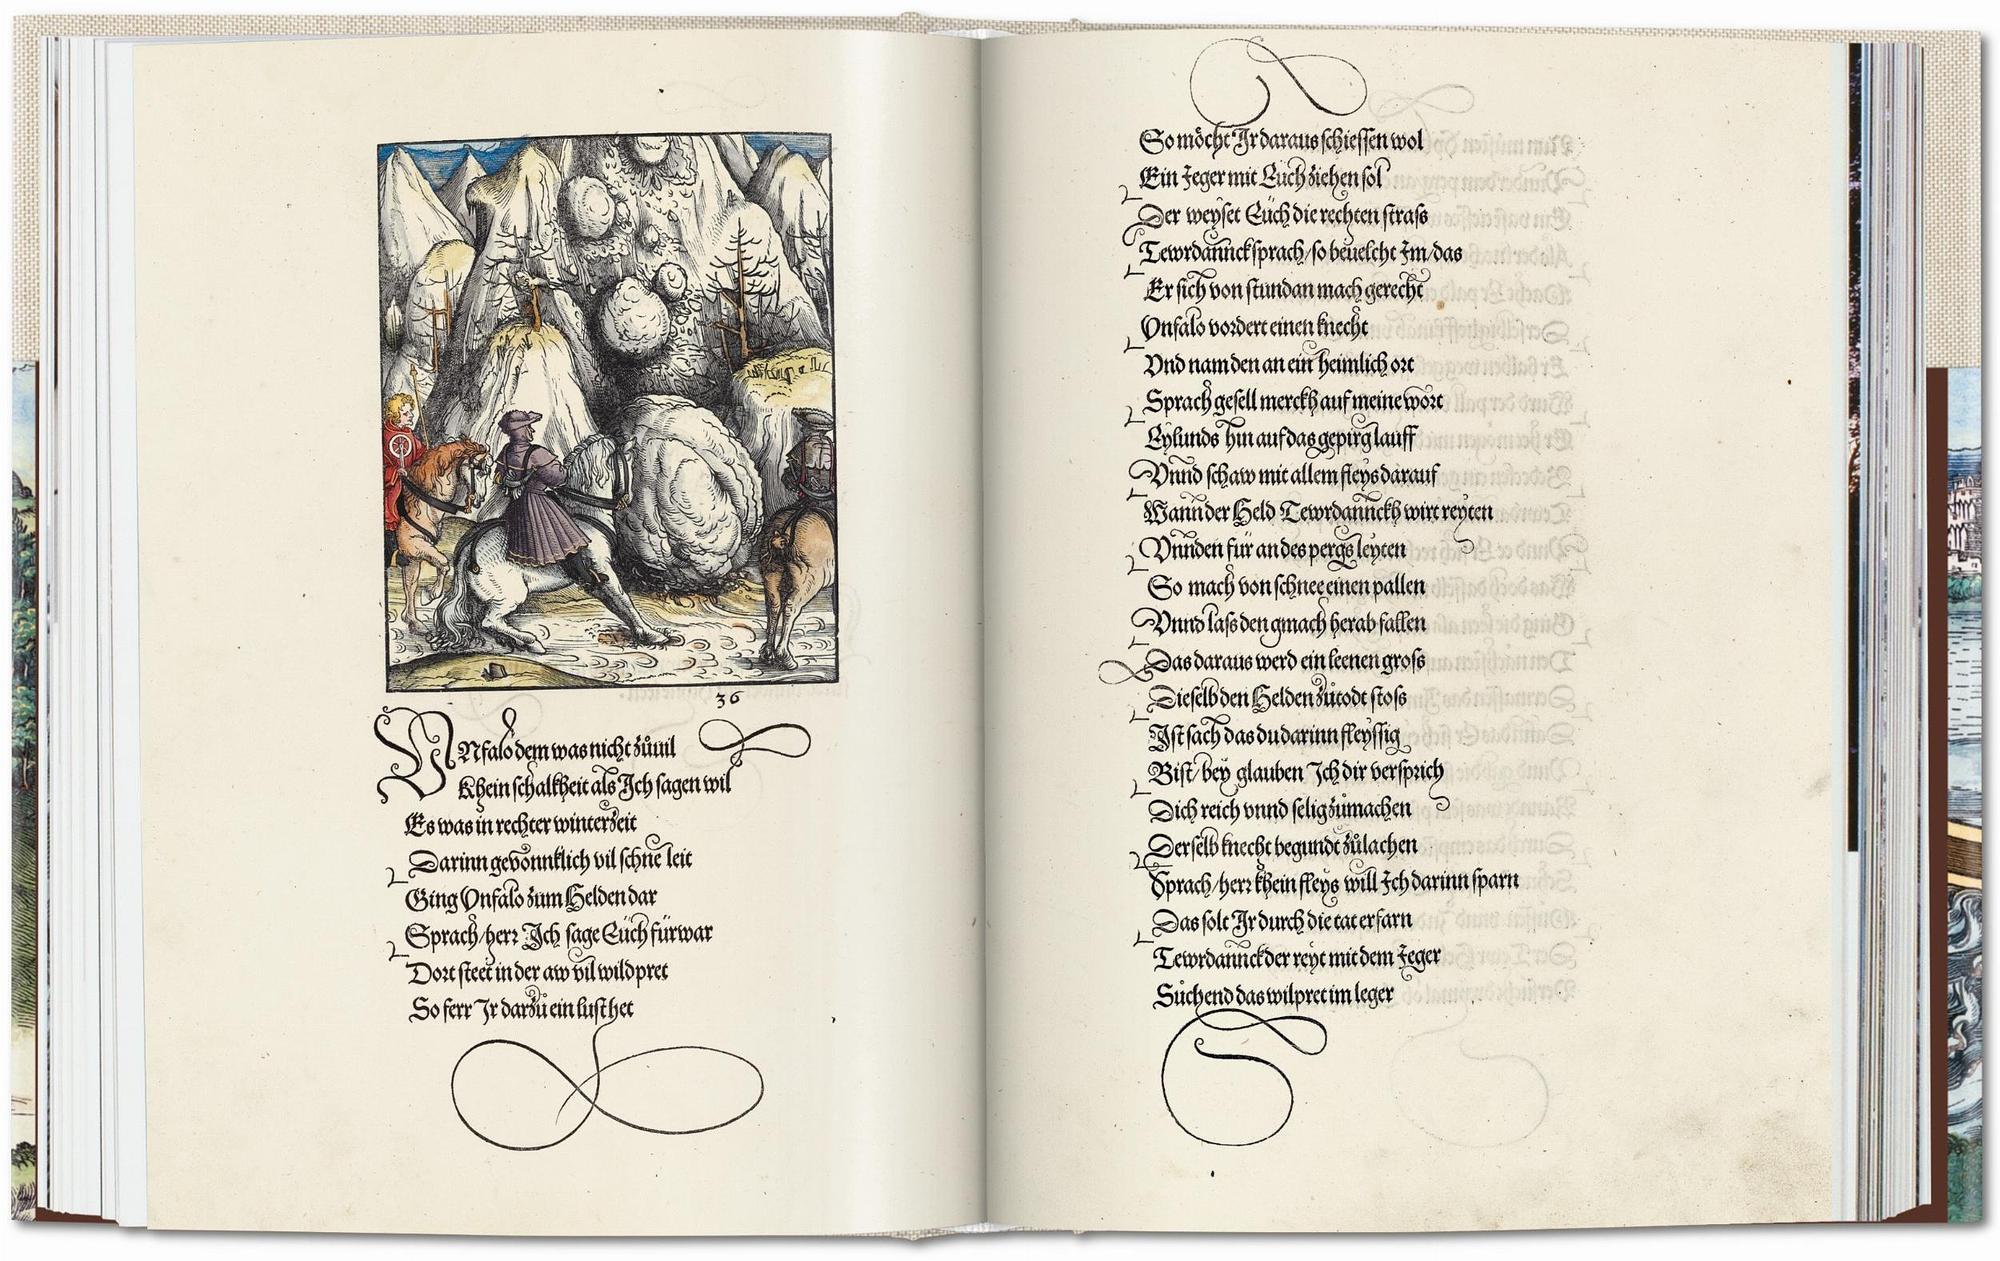 36
UNfalo dem was nicht zůuil
Khein schalkheit als Ich sagen wil
Es was in rechter winterzeit
Darinn gewonnklich vil schne leit
Ging Vnfalo zum Helden dar
Sprach/herr Ich sage Euch fürwar
Dort steet in der aw vil wildpret
So ferr Ir darzů ein lust het
So möcht Ir daraus schiessen wol
Ein Jeger mit Euch ziehen sol
Der weyset Euch die rechten strass
Tewrdannck sprach/so beuelcht Im/das
Er sich von stund an mach gerecht
Vnfalo vordert einen knecht
Vnd nam den an ein heimlich ort
Sprach gesell merckh auf meine wort
Eylunds hin auf das gepirg lauff
Vnnd schaw mit allem fleys darauf
Wann der Held Tewrdannckh wirt reyten
Vnnden für an des pergs leyten
So mach von schnee einen pallen
Vnnd lass den gmach herab fallen
Das daraus werd ein leenen gross
Dieselb den Helden zůtodt stoss
Ist sach das du darinn fleyssig
Bist/bey glauben Ich dir versprich
Dich reich vnnd selig zůmachen
Derselb knecht begundt zůlachen
Sprach/herr khein fleys will Ich darinn sparn
Das solt Ir durch die tat erfarn
Tewrdannck der reyt mit dem Jeger
Sůchend das wilpret im leger